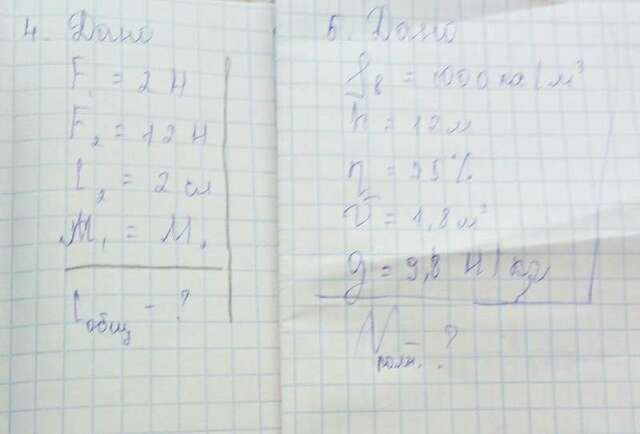 4. Дано
F₁ = 2 Н
F₂ = 12 Н
l₂ = 2 см
M₁ = M₂
lобщ - ?
5. Дано
ρв = 1000 кг/м³
h = 12 м
η = 95 %
V = 1,8 м³
g = 9,8 Н/кг
Nполн. - ?